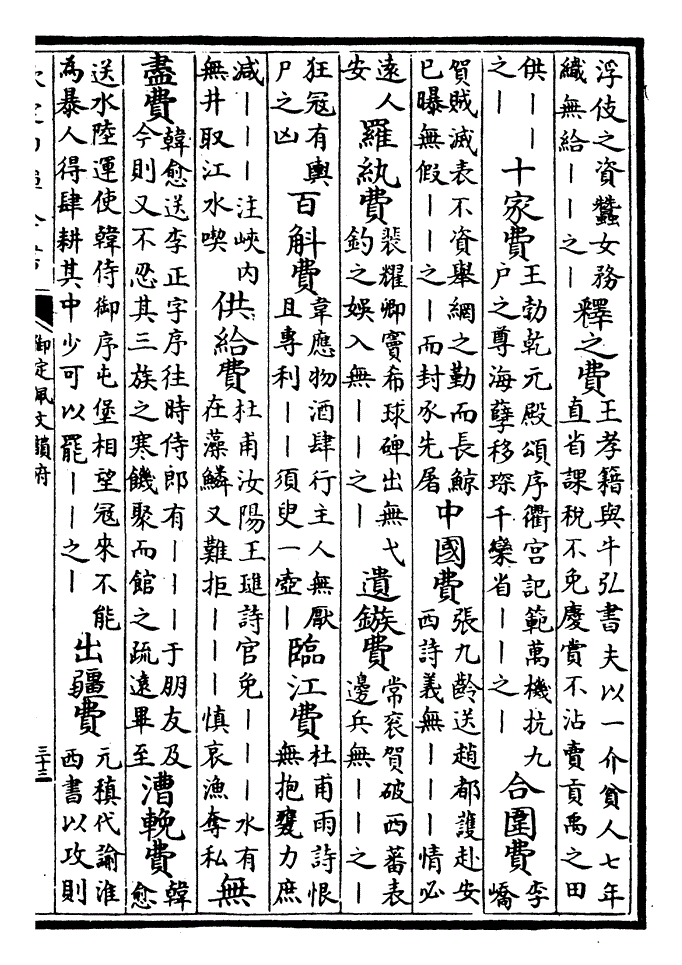 浮伎之資蠶女務
纎無給丨丨之丨
釋之費
王孝籍與牛弘書夫以一介貧人七年
直省課稅不免慶賞不沾賣貢禹之田
供丨丨
之丨
十家費
王勃乾元殿頌序衢宫記範萬機抗九
户之尊海孽移琛千欒省丨丨之丨
合圍費
李
嶠
賀賊滅表不資舉網之勤而長鯨
已曝無假丨丨之丨而封豕先屠
中國費
張九齡送趙都護赴安
西詩義無丨丨丨情必
遠人
安
羅紈費
裴耀卿竇希球碑出無弋
釣之娯入無丨丨之丨
遺鏃費
常衮賀破西蕃表
邊兵無丨丨之丨
狂冦有輿
尸之凶
百斛費
韋應物酒肆行主人無厭
且專利丨丨須臾一壺丨
臨江費
杜甫雨詩恨
無抱甕力庶
減丨丨丨注峽内
無井取江水喫
供給費
杜甫汝陽王璡詩官免丨丨丨水有
在藻鱗又難拒丨丨慎哀漁奪私
無
盡費
韓愈送李正字序往時侍郎有丨丨丨于朋友及
今則又不忍其三族之寒饑聚而館之疏遠畢至
漕輓費
韓
愈
送水陸運使韓侍御序屯堡相望冦來不能
為暴人得肆耕其中少可以罷丨丨之丨
出疆費
元稹代諭淮
西書以攻則
御定佩文韻府
三十三